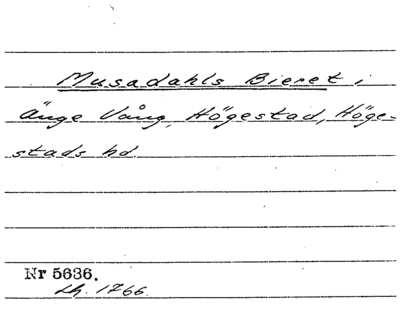 Musadahls Bieret i
Änge Vång, Högestad, Höge-
stads hd
Nr 5636.
Lh. 1766.